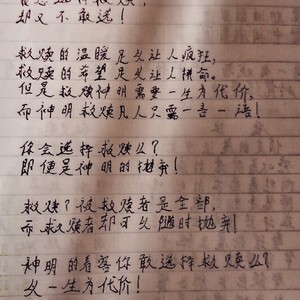 却又不敢选!
救赎的温暖足以让人疯狂,
救赎的希望足以让人拼命。
但是救赎神明需要一生为代价,
而神明救赎凡人只需一言一语!
你会选择救赎么?
即便是神明的抛弃!
救赎?被救赎者是全部,
而救赎者却可以随时抛弃!
神明的看客你敢选择救赎么?
以一生为代价!